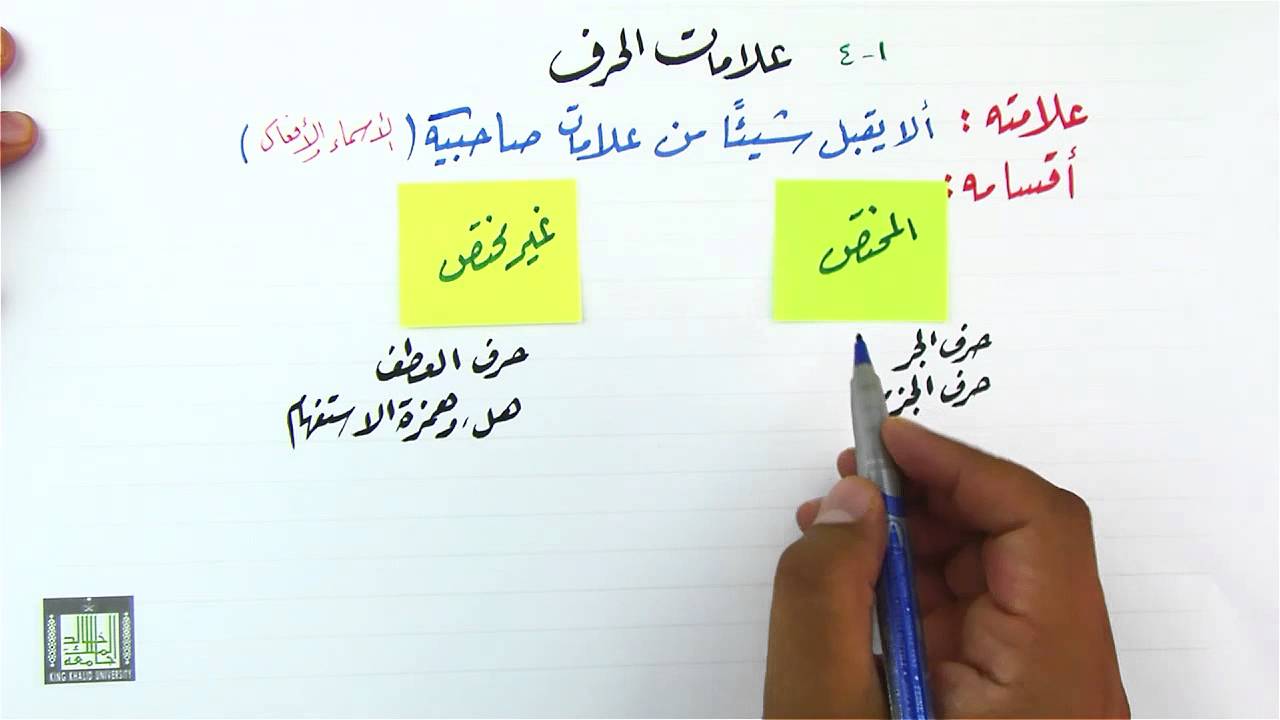 ١-٤ علامات الحرف
علامته : ألا يقبل شيئًا من علامات صاحبيه ( الأسماء والأفعال )
أقسامه :
المختص
غير مختص
حرف الجر
حرف الجزم
حرف العطف
هل، وهمزة الاستفهام
جامعة الملك خالد
KING KHALID UNIVERSITY